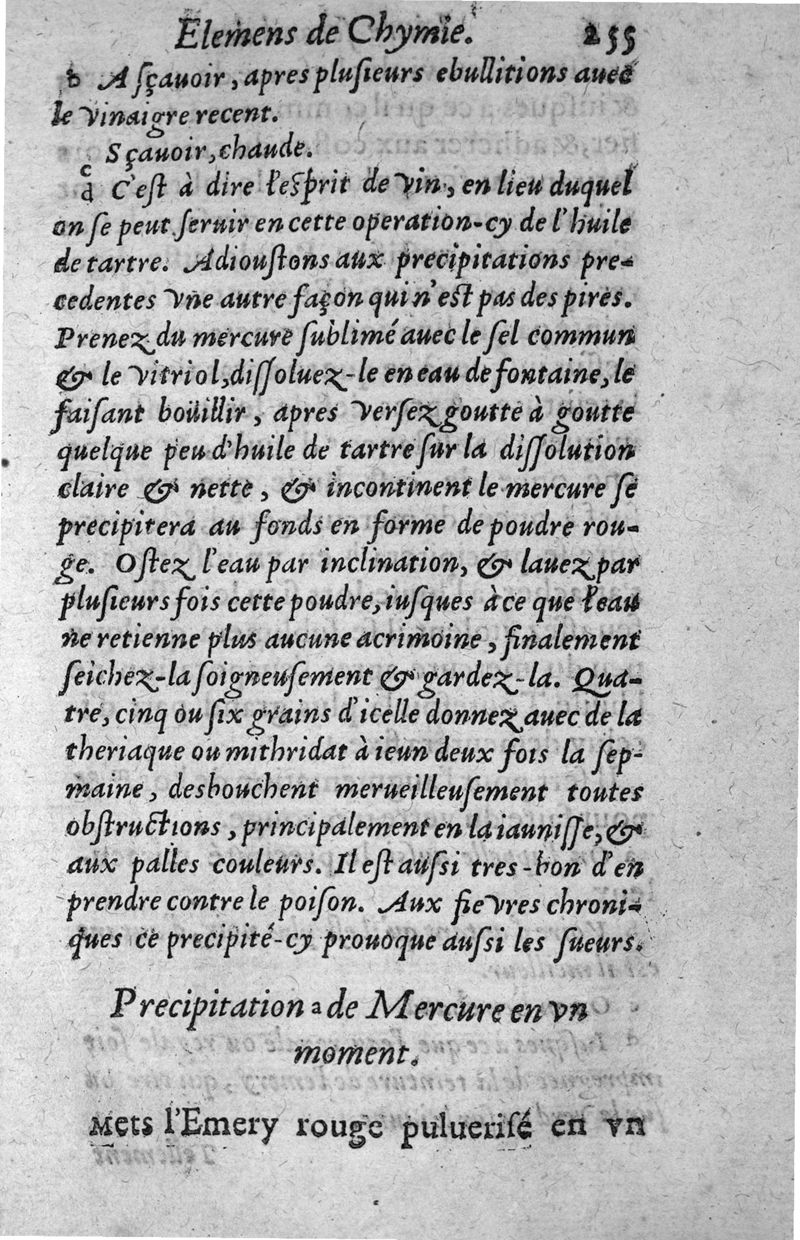 Elemens de Chymie. 255
b A sçauoir, apres plusieurs ebullitions auec
le vinaigre recent.
c Sçauoir, chaude.
d C'est à dire l'esprit de vin, en lieu duquel
on se peut seruir en cette operation-cy de l'huile
de tartre. Adioustons aux precipitations pre-
cedentes vne autre façon qui n'est pas des pires.
Prenez du mercure sublimé auec le sel commun
& le vitriol, dissoluez-le en eau de fontaine, le
faisant boüillir, apres versez goutte à goutte
quelque peu d'huile de tartre sur la dissolution
claire & nette, & incontinent le mercure se
precipitera au fonds en forme de poudre rou-
ge. Ostez l'eau par inclination, & lauez par
plusieurs fois cette poudre, iusques à ce que l'eau
ne retienne plus aucune acrimoine, finalement
seichez-la soigneusement & gardez-la. Qua-
tre, cinq ou six grains d'icelle donnez auec de la
theriaque ou mithridat à ieun deux fois la sep-
maine, desbouchent merueilleusement toutes
obstructions, principalement en la iaunisse, &
aux palles couleurs. Il est aussi tres-bon d'en
prendre contre le poison. Aux fievres chroni-
ques ce precipité-cy prouoque aussi les sueurs.
Precipitation a de Mercure en vn
moment.
Mets l'Emery rouge puluerisé en vn